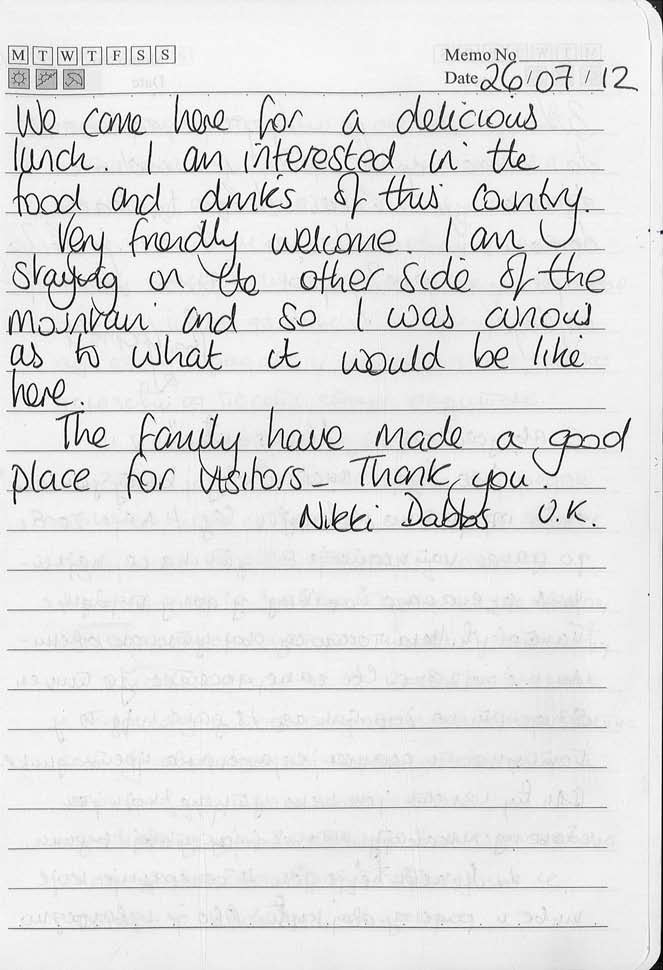 M T W T F S S
Memo No
Date 26/07/12
We came here for a delicious
lunch. I am interested in the
food and drinks of this country.
Very friendly welcome. I am
staying on the other side of the
mountain and so I was curious
as to what it would be like
here.
The family have made a good
place for visitors - Thank you.
Nikki Dabbs U.K.